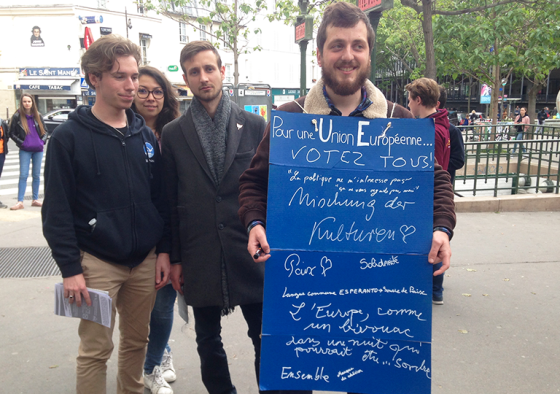 LE SAINT MANDÉ
CAFÉ TABAC
Pour une Union Européenne...
VOTEZ TOUS!
"La politique ne m'intéresse pas"
Mischung der
Kulturen
Paix
Solidarité
Langue commune ESPERANTO
L'Europe, comme
un bivouac
dans une nuit qui
pourrait être... sombre
Ensemble